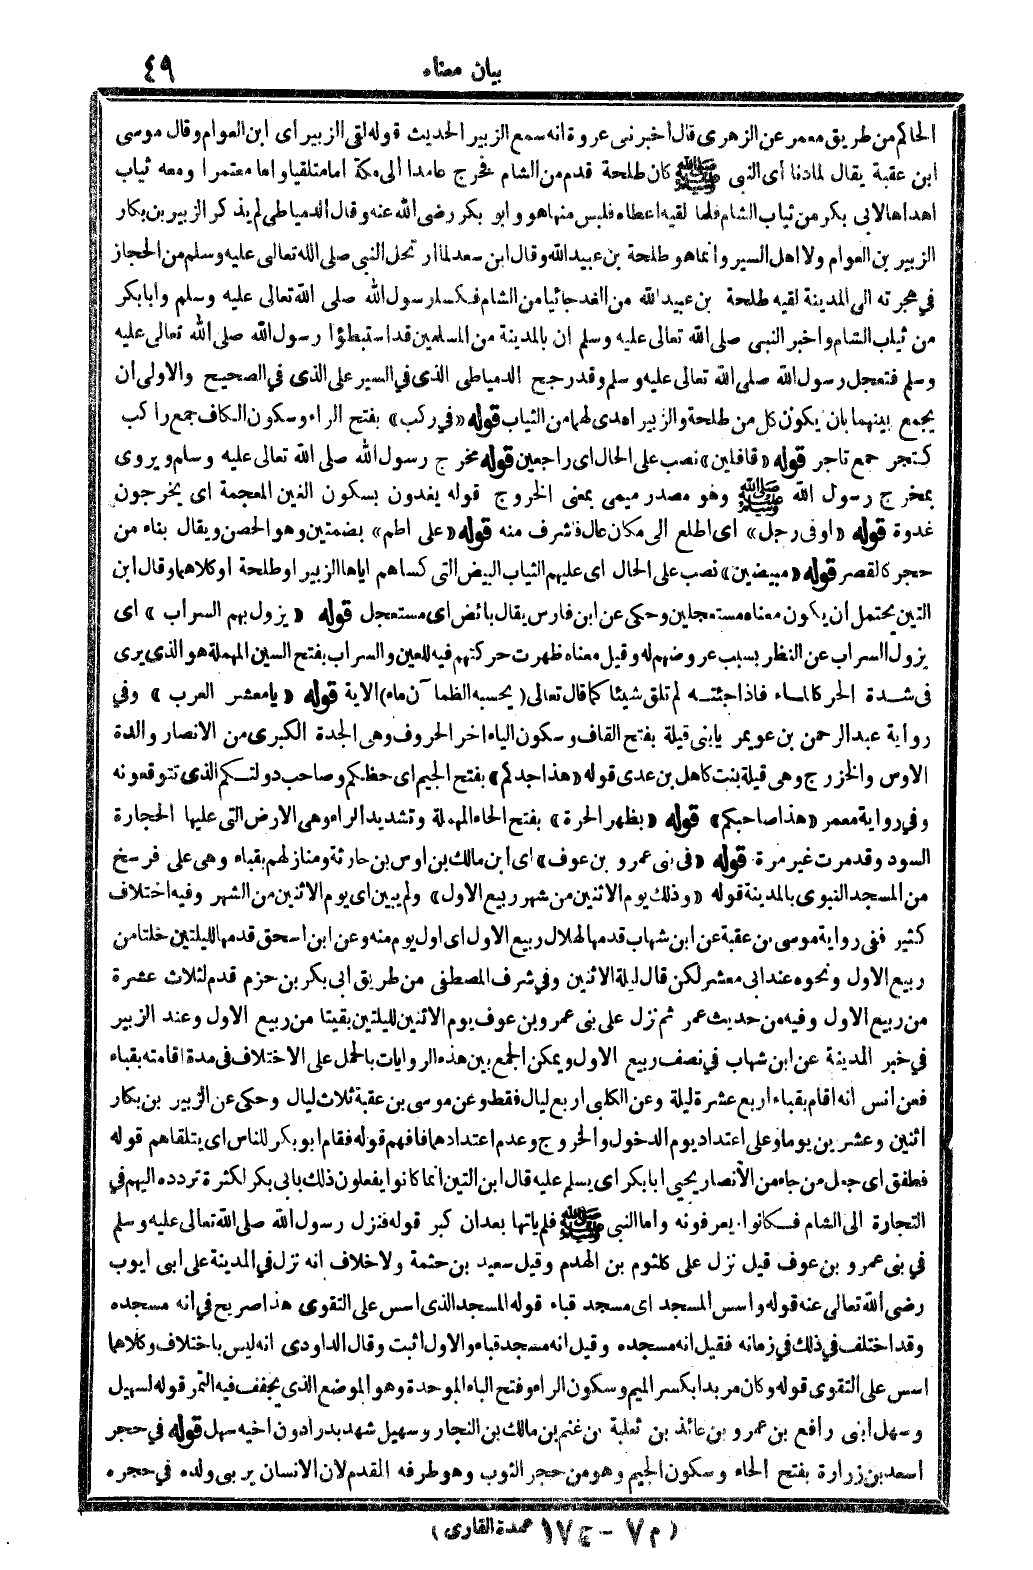 بيان معناه
٤٩
الحاكم من طريق معمر عن الزهرى قال أخبرنى عروة انه سمع الزبير الحديث قوله لقى الزبير أى ابن العوام وقال موسى
ابن عقبة يقال لمادنا أى النبى ﷺ كان طلحة قدم من الشام فخرج عامدا ألى مكة امامتلقيا واما معتمرا ومعه ثياب
اهداها لابى بكر من ثياب الشام فلما لقيه اعطاه فلبس منها هو وابو بكر رضى الله عنه وقال الدمياطى لم يذكر الزبير بن بكار
الزبير بن العوام ولا اهل السير وانما هو طلحة بن عبيد الله وقال ابن سعد لما ارتحل النبى صلى الله تعالى عليه وسلم من الحجاز
في هجرته الى المدينة لقيه طلحة بن عبيد الله من الغد جائيا من الشام فكسا رسول الله صلى الله تعالى عليه وسلم وابا بكر
من ثياب الشام واخبر النبى صلى الله تعالى عليه وسلم ان بالمدينة من المسلمين قد استبطؤا رسول الله صلى الله تعالى عليه
وسلم فتعجل رسول الله صلى الله تعالى عليه وسلم وقد رجح الدمياطى الذى في السير على الذى في الصحيح والاولى ان
يجمع بينهما بان يكون كل من طلحة والزبير اهدى لهما من الثياب قوله «في ركب» بفتح الراء وسكون الكاف جمع راكب
كتجر جمع تاجر قوله «قافلين» نصب على الحال اى راجعين قوله مخرج رسول الله صلى الله تعالى عليه وسلم ويروى
بمخرج رسول الله ﷺ وهو مصدر ميمى بمعنى الخروج قوله يغدون بسكون الغين المعجمة اى يخرجون
غدوة قوله «اوفى رجل» اى اطلع الى مكان عال فاشرف منه قوله «على اطم» بضمتين وهو الحصن ويقال بناء من
حجر كالقصر قوله «مبيضين» نصب على الحال اى عليهم الثياب البيض التى كساهم اياها الزبير او طلحة او كلاهما وقال ابن
التين يحتمل ان يكون معناه مستعجلين وحكى عن ابن فارس يقال بائض اى مستعجل قوله «يزول بهم السراب» اى
يزول السراب عن النظر بسبب عروضهم له وقيل معناه ظهرت حركتهم فيه للعين والسراب بفتح السين المهملة هو الذى يرى
فى شدة الحر كالماء فاذا جئته لم تلق شيئا كما قال تعالى (يحسبه الظمآن ماء) الاية قوله «يا معشر العرب» وفي
رواية عبد الرحمن بن عويمر يابنى قيلة بفتح القاف وسكون الياء اخر الحروف وهى الجدة الكبرى من الانصار والدة
الاوس والخزرج وهى قيلة بنت كاهل بن عدى قوله «هذا جدكم» بفتح الجيم اى حظكم وصاحب دولتكم الذى تتوقعونه
وفي رواية معمر «هذا صاحبكم» قوله «بظهر الحرة» بفتح الحاء المهملة وتشديد الراء وهى الارض التى عليها الحجارة
السود وقد مرت غير مرة قوله «فى بنى عمرو بن عوف» اى ابن مالك بن اوس بن حارثة ومنازلهم بقباء وهى على فرسخ
من المسجد النبوى بالمدينة قوله «وذلك يوم الاثنين من شهر ربيع الاول» ولم يبين اى يوم الاثنين من الشهر وفيه اختلاف
كثير ففى رواية موسى بن عقبة عن ابن شهاب قدمها لهلال ربيع الاول اى اول يوم منه وعن ابن اسحق قدمها لليلتين خلتا من
ربيع الاول ونحوه عند ابى معشر لكن قال ليلة الاثنين وفي شرف المصطفى من طريق ابى بكر بن حزم قدم لثلاث عشرة
من ربيع الاول وفيه من حديث عمر ثم نزل على بنى عمرو بن عوف يوم الاثنين لليلتين بقيتا من ربيع الاول وعند الزبير
في خبر المدينة عن ابن شهاب في نصف ربيع الاول ويمكن الجمع بين هذه الروايات بالحمل على الاختلاف فى مدة اقامته بقباء
فعن انس انه اقام بقباء اربع عشرة ليلة وعن الكلبى اربع ليال فقط وعن موسى بن عقبة ثلاث ليال وحكى عن الزبير بن بكار
اثنين وعشرين يوما وعلى اعتداد يوم الدخول والخروج وعدم اعتدادهما فافهم قوله فقام ابو بكر للناس اى يتلقاهم قوله
فطفق اى جعل من جاء من الأنصار يحيى ابا بكر اى يسلم عليه قال ابن التين انما كانوا يفعلون ذلك بابى بكر لكثرة تردده اليهم في
التجارة الى الشام فكانوا يعرفونه واما النبى ﷺ فلم ياتها بعد ان كبر قوله فنزل رسول الله صلى الله تعالى عليه وسلم
في بنى عمرو بن عوف قيل نزل على كلثوم بن الهدم وقيل سعيد بن خثمة ولا خلاف انه نزل في المدينة على ابى ايوب
رضى الله تعالى عنه قوله واسس المسجد اى مسجد قباء قوله المسجد الذى اسس على التقوى هذا صريح في انه مسجده
وقد اختلف في ذلك في زمانه فقيل انه مسجده وقيل انه مسجد قباء والاول اثبت وقال الداودى انه ليس باختلاف وكلاهما
اسس على التقوى قوله وكان مربدا بكسر الميم وسكون الراء وفتح الباء الموحدة وهو الموضع الذى يجفف فيه التمر قوله لسهيل
وسهل ابنى رافع بن عمرو بن عائذ بن ثعلبة بن غنم بن مالك بن النجار وسهيل شهد بدرا دون اخيه سهل قوله في حجر
اسعد بن زرارة بفتح الحاء وسكون الجيم وهو من حجر الثوب وهو طرفه المقدم لان الانسان يربى ولده في حجره
(م ٧ - ج ١٧ عمدة القارى)